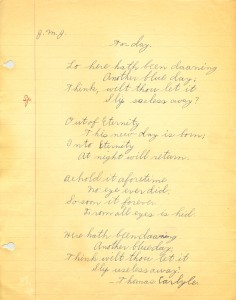 J. M. J.
To-day.
Lo here hath been dawning
Another blue day,
Think, wilt thou let it
Slip useless away?
Out of Eternity
This new day is born;
Unto Eternity
At night will return.
Behold it aforetime
No eye ever did.
So soon it forever
From all eyes is hid
Here hath been dawning
Another blue day,
Think wilt thou let it
Slip useless away?
—Thomas Carlyle.